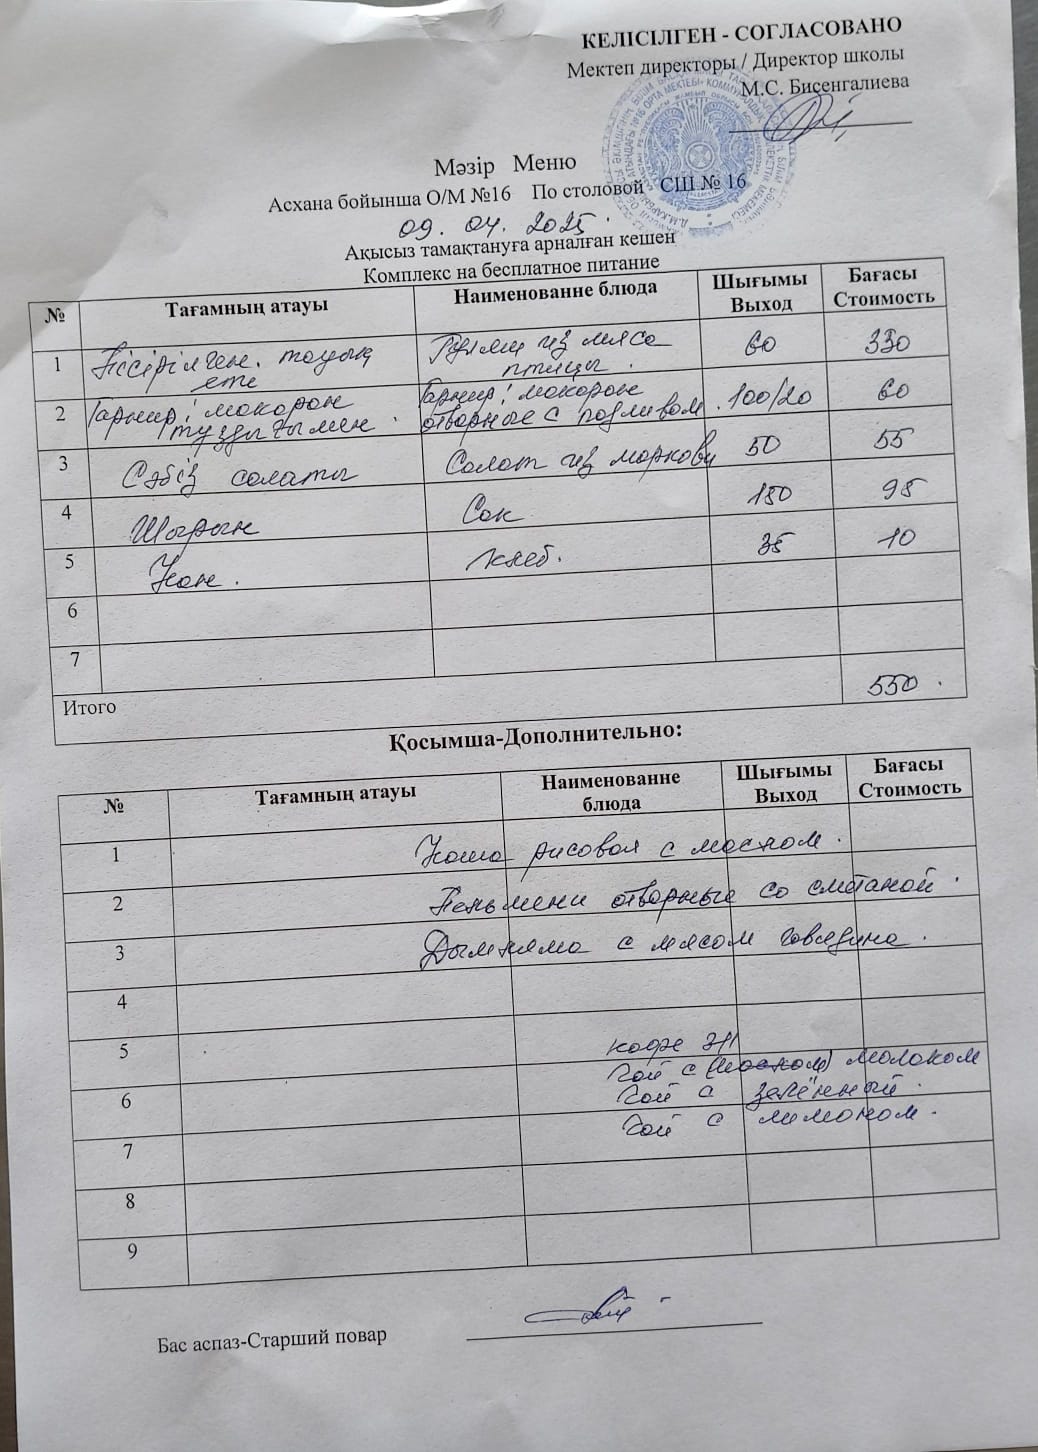 КЕЛІСІЛГЕН - СОГЛАСОВАНО
Мектеп директоры / Директор школы
М.С. Бисенгалиева
Мәзір Меню
Асхана бойынша О/М №16 По столовой СШ № 16
09. 04. 2025.
Ақысыз тамақтануға арналған кешен
Комплекс на бесплатное питание
№ Тағамның атауы Наименованне блюда Шығымы Выход Бағасы Стоимость
1 Пісірілген. тауық еті Гуляш из мяса птицы. 60 330
2 Гарнир: макарон тұздығымен. Гарнир: макарон отварные с подливом. 100/20 60
3 Сәбіз салаты Салат из моркови 50 55
4 Шырын Сок 180 95
5 Нан. Хлеб. 35 10
6
7
Итого 550.
Қосымша-Дополнительно:
№ Тағамның атауы Наименованне блюда Шығымы Выход Бағасы Стоимость
1 Каша рисовая с маслом.
2 Пельмени отварные со сметаной.
3 Дымляма с мясом говядина.
4
5 кофе 3/1
чай с (маслом) молоком
6 чай с зелённый.
чай с лимоном.
7
8
9
Бас аспаз-Старший повар